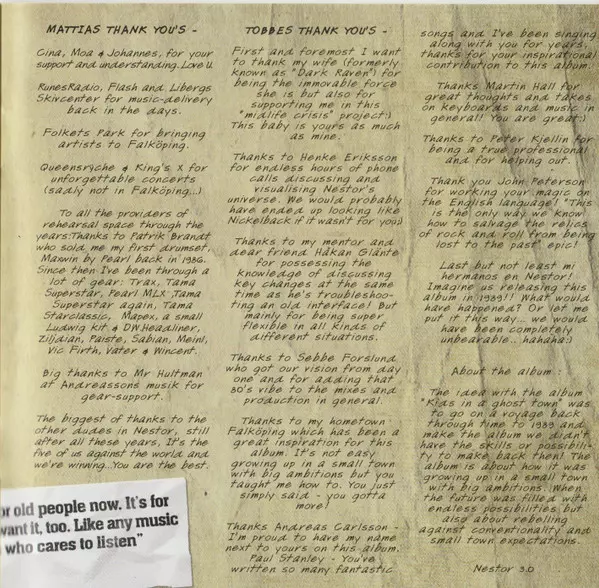 MATTIAS THANK YOU'S -
Gina, Moa & Johannes, for your
support and understanding. Love U.
RunesRadio, Flash and Libergs
Skivcenter for music-delivery
back in the days.
Folkets Park for bringing
artists to Falköping.
Queensrÿche & King's X for
unforgettable concerts
(sadly not in Falköping...)
To all the providers of
rehearsal space through the
years:Thanks to Patrik Brandt
who sold me my first drumset,
Maxwin by Pearl back in 1986.
Since then I've been through a
lot of gear: Trax, Tama
Superstar, Pearl MLX ,Tama
Superstar again, Tama
Starclassic, Mapex, a small
Ludwig kit & DW.Headliner,
Zildjian, Paiste, Sabian, Meinl,
Vic Firth, Vater & Wincent.
Big thanks to Mr Hultman
at Andreassons musik for
gear-support.
The biggest of thanks to the
other dudes in Nestor, still
after all these years, It's the
five of us against the world and
we're winning...You are the best.
or old people now. It's for
want it, too. Like any music
who cares to listen"
TOBBES THANK YOU'S -
First and foremost I want
to thank my wife (formerly
known as "Dark Raven") for
being the immovable force
she is but also for
supporting me in this
"midlife crisis" project:)
This baby is yours as much
as mine.
Thanks to Henke Eriksson
for endless hours of phone
calls discussing and
visualising Nestor's
universe. We would probably
have ended up looking like
Nickelback if it wasn't for you;)
Thanks to my mentor and
dear friend Håkan Glänte
for possessing the
knowledge of discussing
key changes at the same
time as he's troubleshoo-
ting an old interface! But
mainly for being super
flexible in all kinds of
different situations.
Thanks to Sebbe Forslund
who got our vision from day
one and for adding that
80's vibe to the mixes and
production in general.
Thanks to my hometown
Falköping which has been a
great inspiration for this
album. It's not easy
growing up in a small town
with big ambitions but you
taught me how to. You just
simply said - you gotta
move!
Thanks Andreas Carlsson -
I'm proud to have my name
next to yours on this album.
Paul Stanley - You've
written so many fantastic
songs and I've been singing
along with you for years,
thanks for your inspirational
contribution to this album!
Thanks Martin Hall for
great thoughts and takes
on keyboards and music in
general! You are great:)
Thanks to Peter Kjellin for
being a true professional
and for helping out.
Thank you John Peterson
for working your magic on
the English language! "This
is the only way we know
how to salvage the relics
of rock and roll from being
lost to the past" epic!
Last but not least mi
hermanos en Nestor!
Imagine us releasing this
album in 1989!! What would
have happened? Or let me
put it this way... we would
have been completely
unbearable.. hahaha:)
About the album :
The idea with the album
"Kids in a ghost town" was
to go on a voyage back
through time to 1989 and
make the album we didn't
have the skills or possibili-
ty to make back then! The
album is about how it was
growing up in a small town
with big ambitions. When
the future was filled with
endless possibilities but
also about rebelling
against conventionality and
small town expectations.
Nestor 3.0